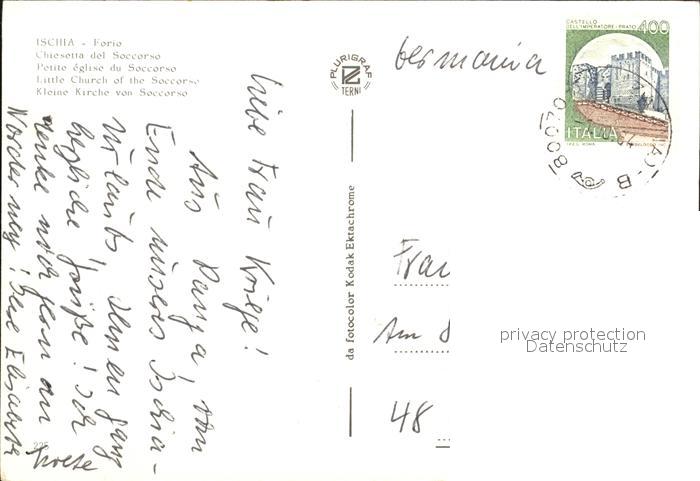 ISCHIA - Forio
Chiesetta del Soccorso
Petite église du Soccorso
Little Church of the Soccorso
Kleine Kirche von Soccorso
Liebe Frau Kriege!
Aus Panza, vom
Ende unseres Ischia-
Urlaubs, Ihnen ganz
herzliche Grüße! Ich
denke noch gern an
Norderney! Ihre Elisabeth
225
PLURIGRAF
TERNI
da fotocolor Kodak Ektachrome
Germania
CASTELLO
DELL'IMPERATORE - PRATO 400
ITALIA
I.P.Z.S. ROMA
80020
Frau
Am
48
privacy protection
Datenschutz